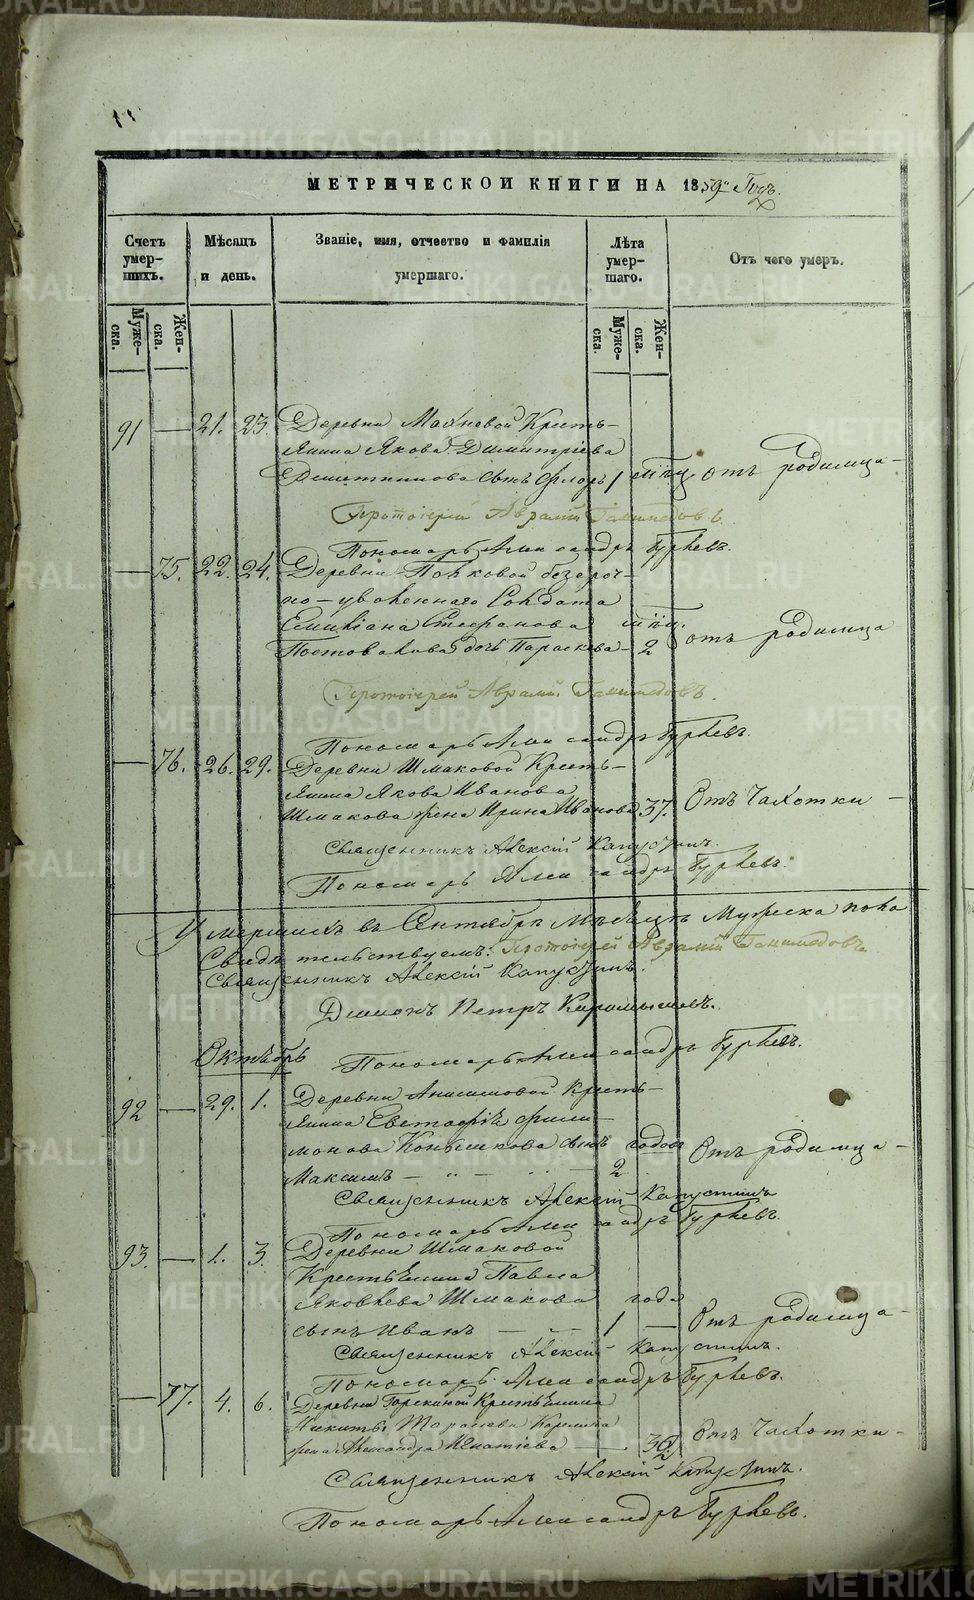 METRIKI.GASO-URAL.RU
МЕТРИЧЕСКОЙ КНИГИ НА 1859й Годъ.
Счетъ умер-шихъ.
Мѣсяцъ и день.
Званіе, имя, отчество и фамилія умершаго.
Лѣта умер-шаго.
Отъ чего умеръ.
Муже-ска.
Жен-ска.
Муже-ска.
Жен-ска.
91 — 21. 23. Деревни Махновой Кресть-
янина Якова Димитріева
сынъ Флоръ 1 мѣц. отъ родимца —
Протоіерей Аврамій
Пономарь Александръ Гурьевъ.
— 75. 22. 24. Деревни безсроч-
но-уволеннаго Солдата
Емиліана Стефанова мѣц.
Постовалова дочь Параскева — 2 отъ родимца
Протоіерей Аврамій
Пономарь Александръ Гурьевъ.
— 76. 26. 29. Деревни Шмаковой Кресть-
янина Якова Иванова
Шмакова жена Ирина Иванова 37. Отъ Чахотки —
Священникъ Алексій Капустинъ.
Пономарь Александръ Гурьевъ.
Умершихъ въ Сентябрѣ Мѣсяцѣ Мужеска пола
Свидѣтельствуемъ: Протоіерей Аврамій
Священникъ Алексій Капустинъ.
Діаконъ Петръ Карамышевъ.
Пономарь Александръ Гурьевъ.
Октябрь
92 — 29. 1. Деревни Анисимовой Кресть-
янина Фили-
монова Конькова сынъ годовъ Отъ родимца —
Максимъ — 2
Священникъ Алексій Капустинъ
Пономарь Александръ Гурьевъ.
93. — 1. 3. Деревни Шмаковой
Крестьянина Павла
Яковлева Шмакова года
сынъ Иванъ — 1 — Отъ родимца —
Священникъ Алексій Капустинъ.
Пономарь Александръ Гурьевъ.
— 77. 4. 6. Деревни Крестьянина
Никиты
жена Александра Игнатіева — 36. Отъ Чахотки —
Священникъ Алексій Капустинъ.
Пономарь Александръ Гурьевъ.